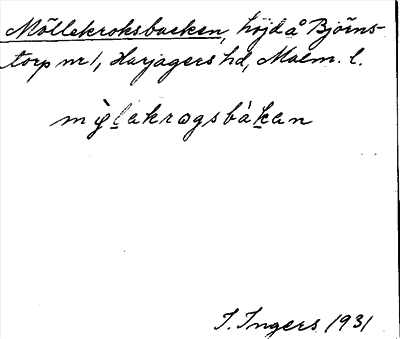 Möllekroksbacken, höjd å Björns-
torp nr 1, Harjagers hd, Malm. l.
mø̀l̲akrogsbàk̲an
I. Ingers 1931